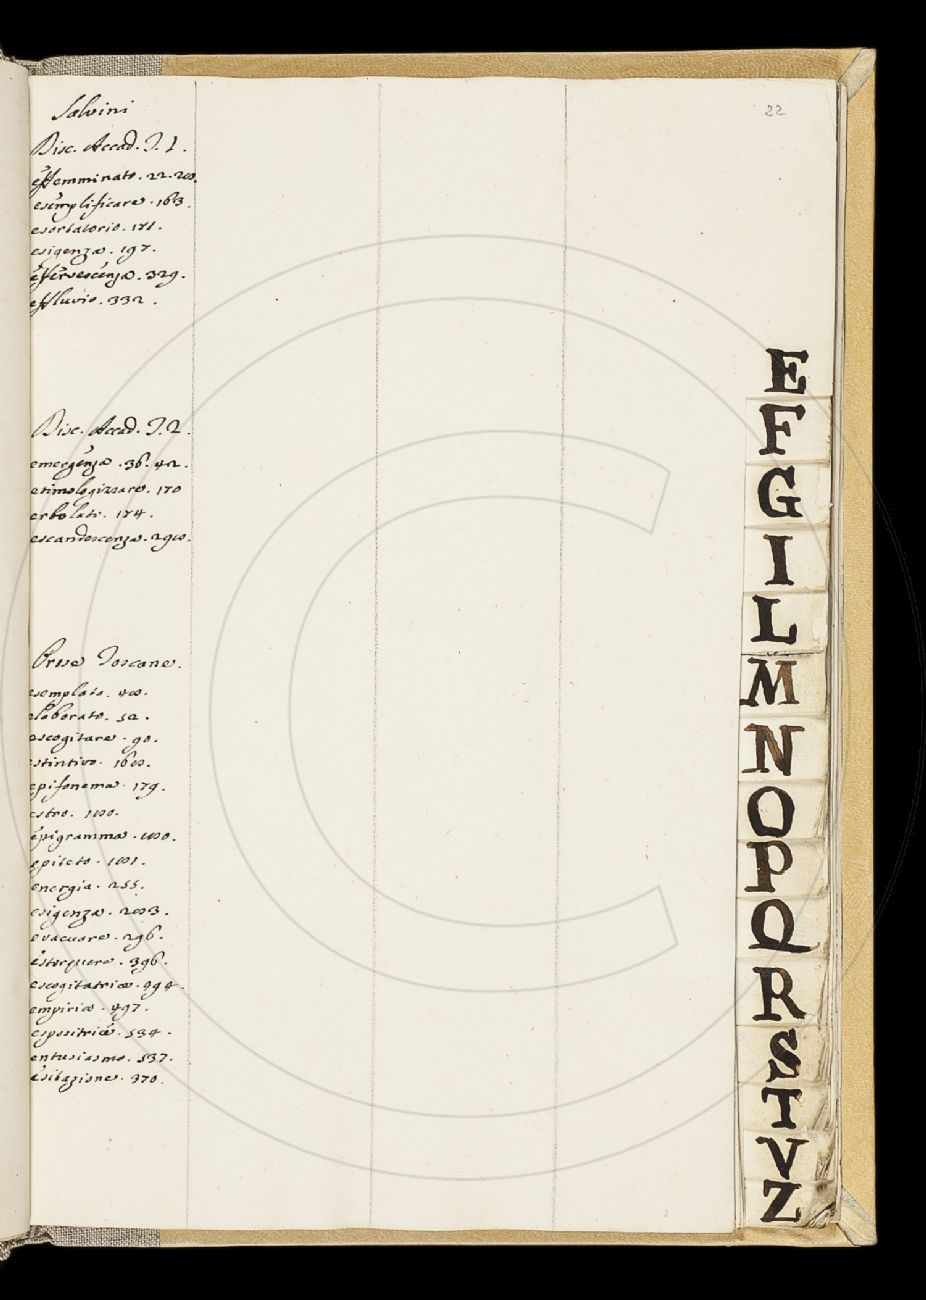 22
Salvini
Disc. Accad. T. 1.
effemminato. 22. 28.
esemplificare. 163.
esortatorio. 171.
esigenza. 197.
effervescenza. 329.
effluvio. 332.
Disc. Accad. T. 2.
emergenza. 36. 42.
etimologizzare. 170
erbolato. 174.
escandescenza. 298.
Prose Toscane.
esemplato. 48.
elaborato. 52.
escogitare. 90.
estintivo. 168.
epifonema. 179.
estro. 180.
epigramma. 180.
epiteto. 181.
energia. 255.
esigenza. 283.
evacuare. 296.
estorquere. 396.
escogitatrice. 494.
empirico. 497.
espositrice. 534.
entusiasmo. 537.
esitazione. 370.
E
F
G
I
L
M
N
O
P
Q
R
S
T
V
Z